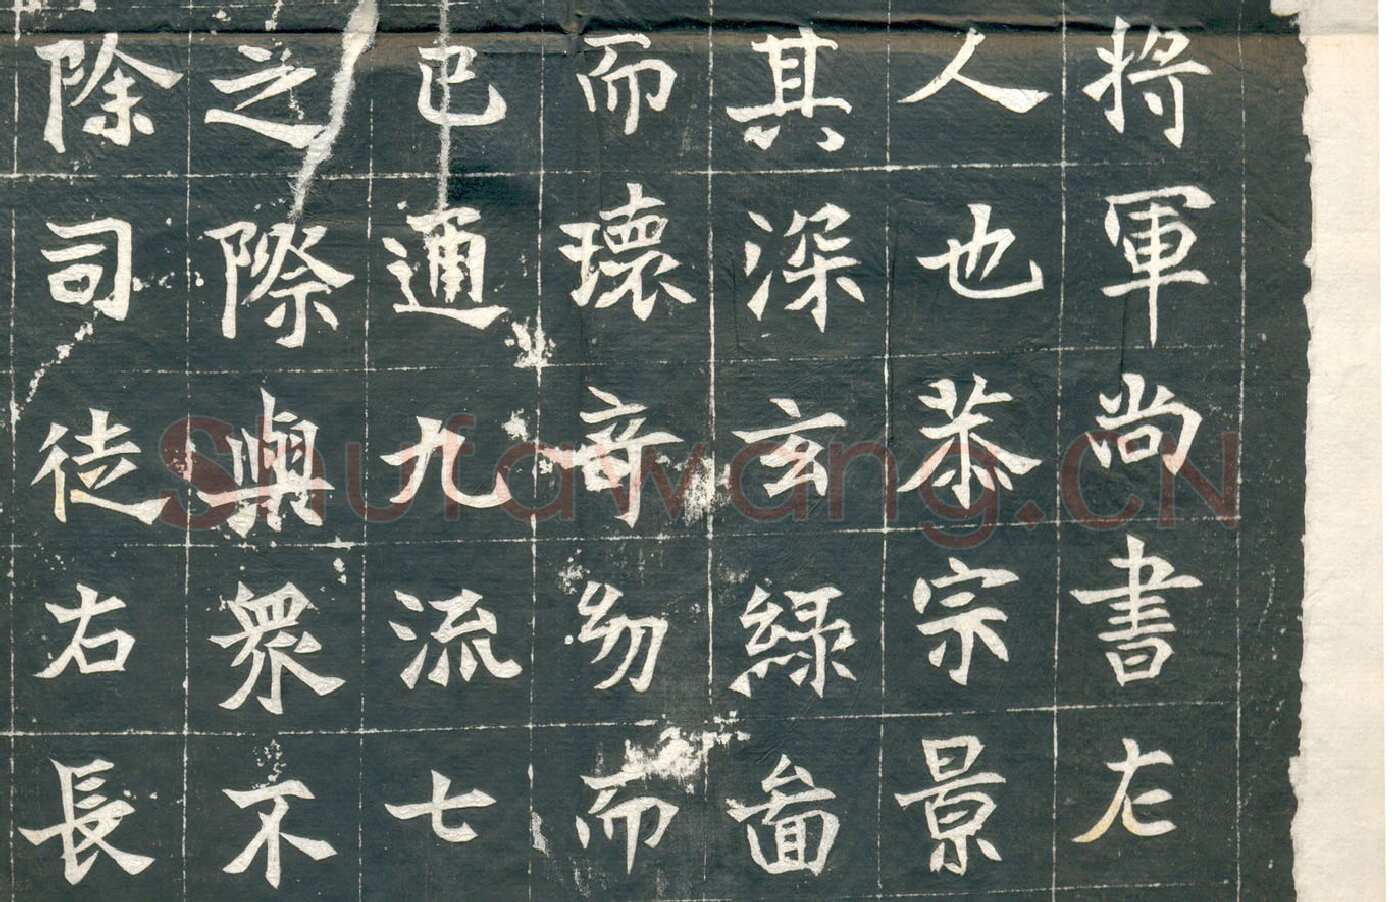 将軍尚書左
人也恭宗景
其深玄緑啚
而瓌奇幼而
已通九流七
之際與衆不
除司徒右長
Shufawang.CN